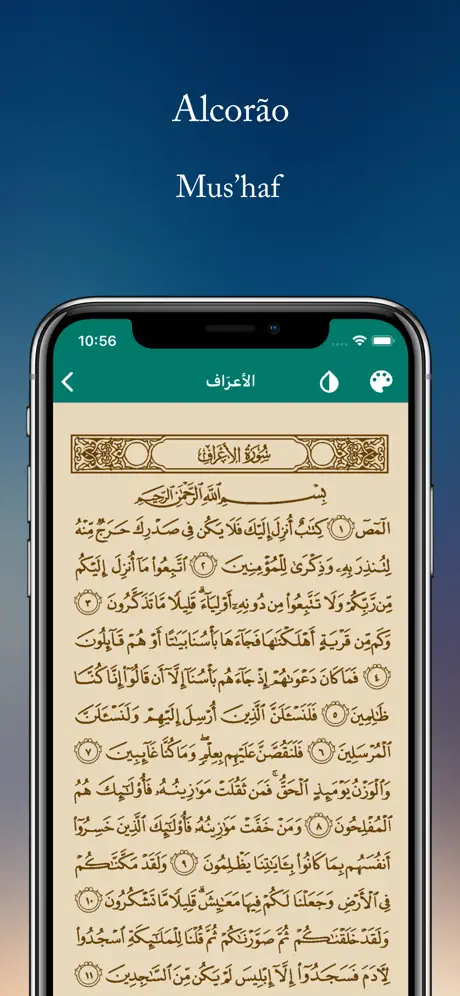 Alcorão
Mus’haf
10:56
الأعرَاف
سُورَةُ الأَعْرَافِ
بِسْمِ اللَّهِ الرَّحْمَٰنِ الرَّحِيمِ
الٓمٓصٓ ١ كِتَٰبٌ أُنزِلَ إِلَيْكَ فَلَا يَكُن فِى صَدْرِكَ حَرَجٌ مِّنْهُ
لِتُنذِرَ بِهِۦ وَذِكْرَىٰ لِلْمُؤْمِنِينَ ٢ ٱتَّبِعُوا۟ مَآ أُنزِلَ إِلَيْكُم
مِّن رَّبِّكُمْ وَلَا تَتَّبِعُوا۟ مِن دُونِهِۦٓ أَوْلِيَآءَ ۗ قَلِيلًا مَّا تَذَكَّرُونَ ٣
وَكَم مِّن قَرْيَةٍ أَهْلَكْنَٰهَا فَجَآءَهَا بَأْسُنَا بَيَٰتًا أَوْ هُمْ قَآئِلُونَ
٤ فَمَا كَانَ دَعْوَىٰهُمْ إِذْ جَآءَهُم بَأْسُنَآ إِلَّآ أَن قَالُوٓا۟ إِنَّا كُنَّا
ظَٰلِمِينَ ٥ فَلَنَسْـَٔلَنَّ ٱلَّذِينَ أُرْسِلَ إِلَيْهِمْ وَلَنَسْـَٔلَنَّ
ٱلْمُرْسَلِينَ ٦ فَلَنَقُصَّنَّ عَلَيْهِم بِعِلْمٍ ۖ وَمَا كُنَّا غَآئِبِينَ ٧
وَٱلْوَزْنُ يَوْمَئِذٍ ٱلْحَقُّ ۚ فَمَن ثَقُلَتْ مَوَٰزِينُهُۥ فَأُو۟لَٰٓئِكَ هُمُ
ٱلْمُفْلِحُونَ ٨ وَمَنْ خَفَّتْ مَوَٰزِينُهُۥ فَأُو۟لَٰٓئِكَ ٱلَّذِينَ خَسِرُوٓا۟
أَنفُسَهُم بِمَا كَانُوا۟ بِـَٔايَٰتِنَا يَظْلِمُونَ ٩ وَلَقَدْ مَكَّنَّٰكُمْ
فِى ٱلْأَرْضِ وَجَعَلْنَا لَكُمْ فِيهَا مَعَٰيِشَ ۗ قَلِيلًا مَّا تَشْكُرُونَ ١٠
وَلَقَدْ خَلَقْنَٰكُمْ ثُمَّ صَوَّرْنَٰكُمْ ثُمَّ قُلْنَا لِلْمَلَٰٓئِكَةِ ٱسْجُدُوا۟
لِءَادَمَ فَسَجَدُوٓا۟ إِلَّآ إِبْلِيسَ لَمْ يَكُن مِّنَ ٱلسَّٰجِدِينَ ١١